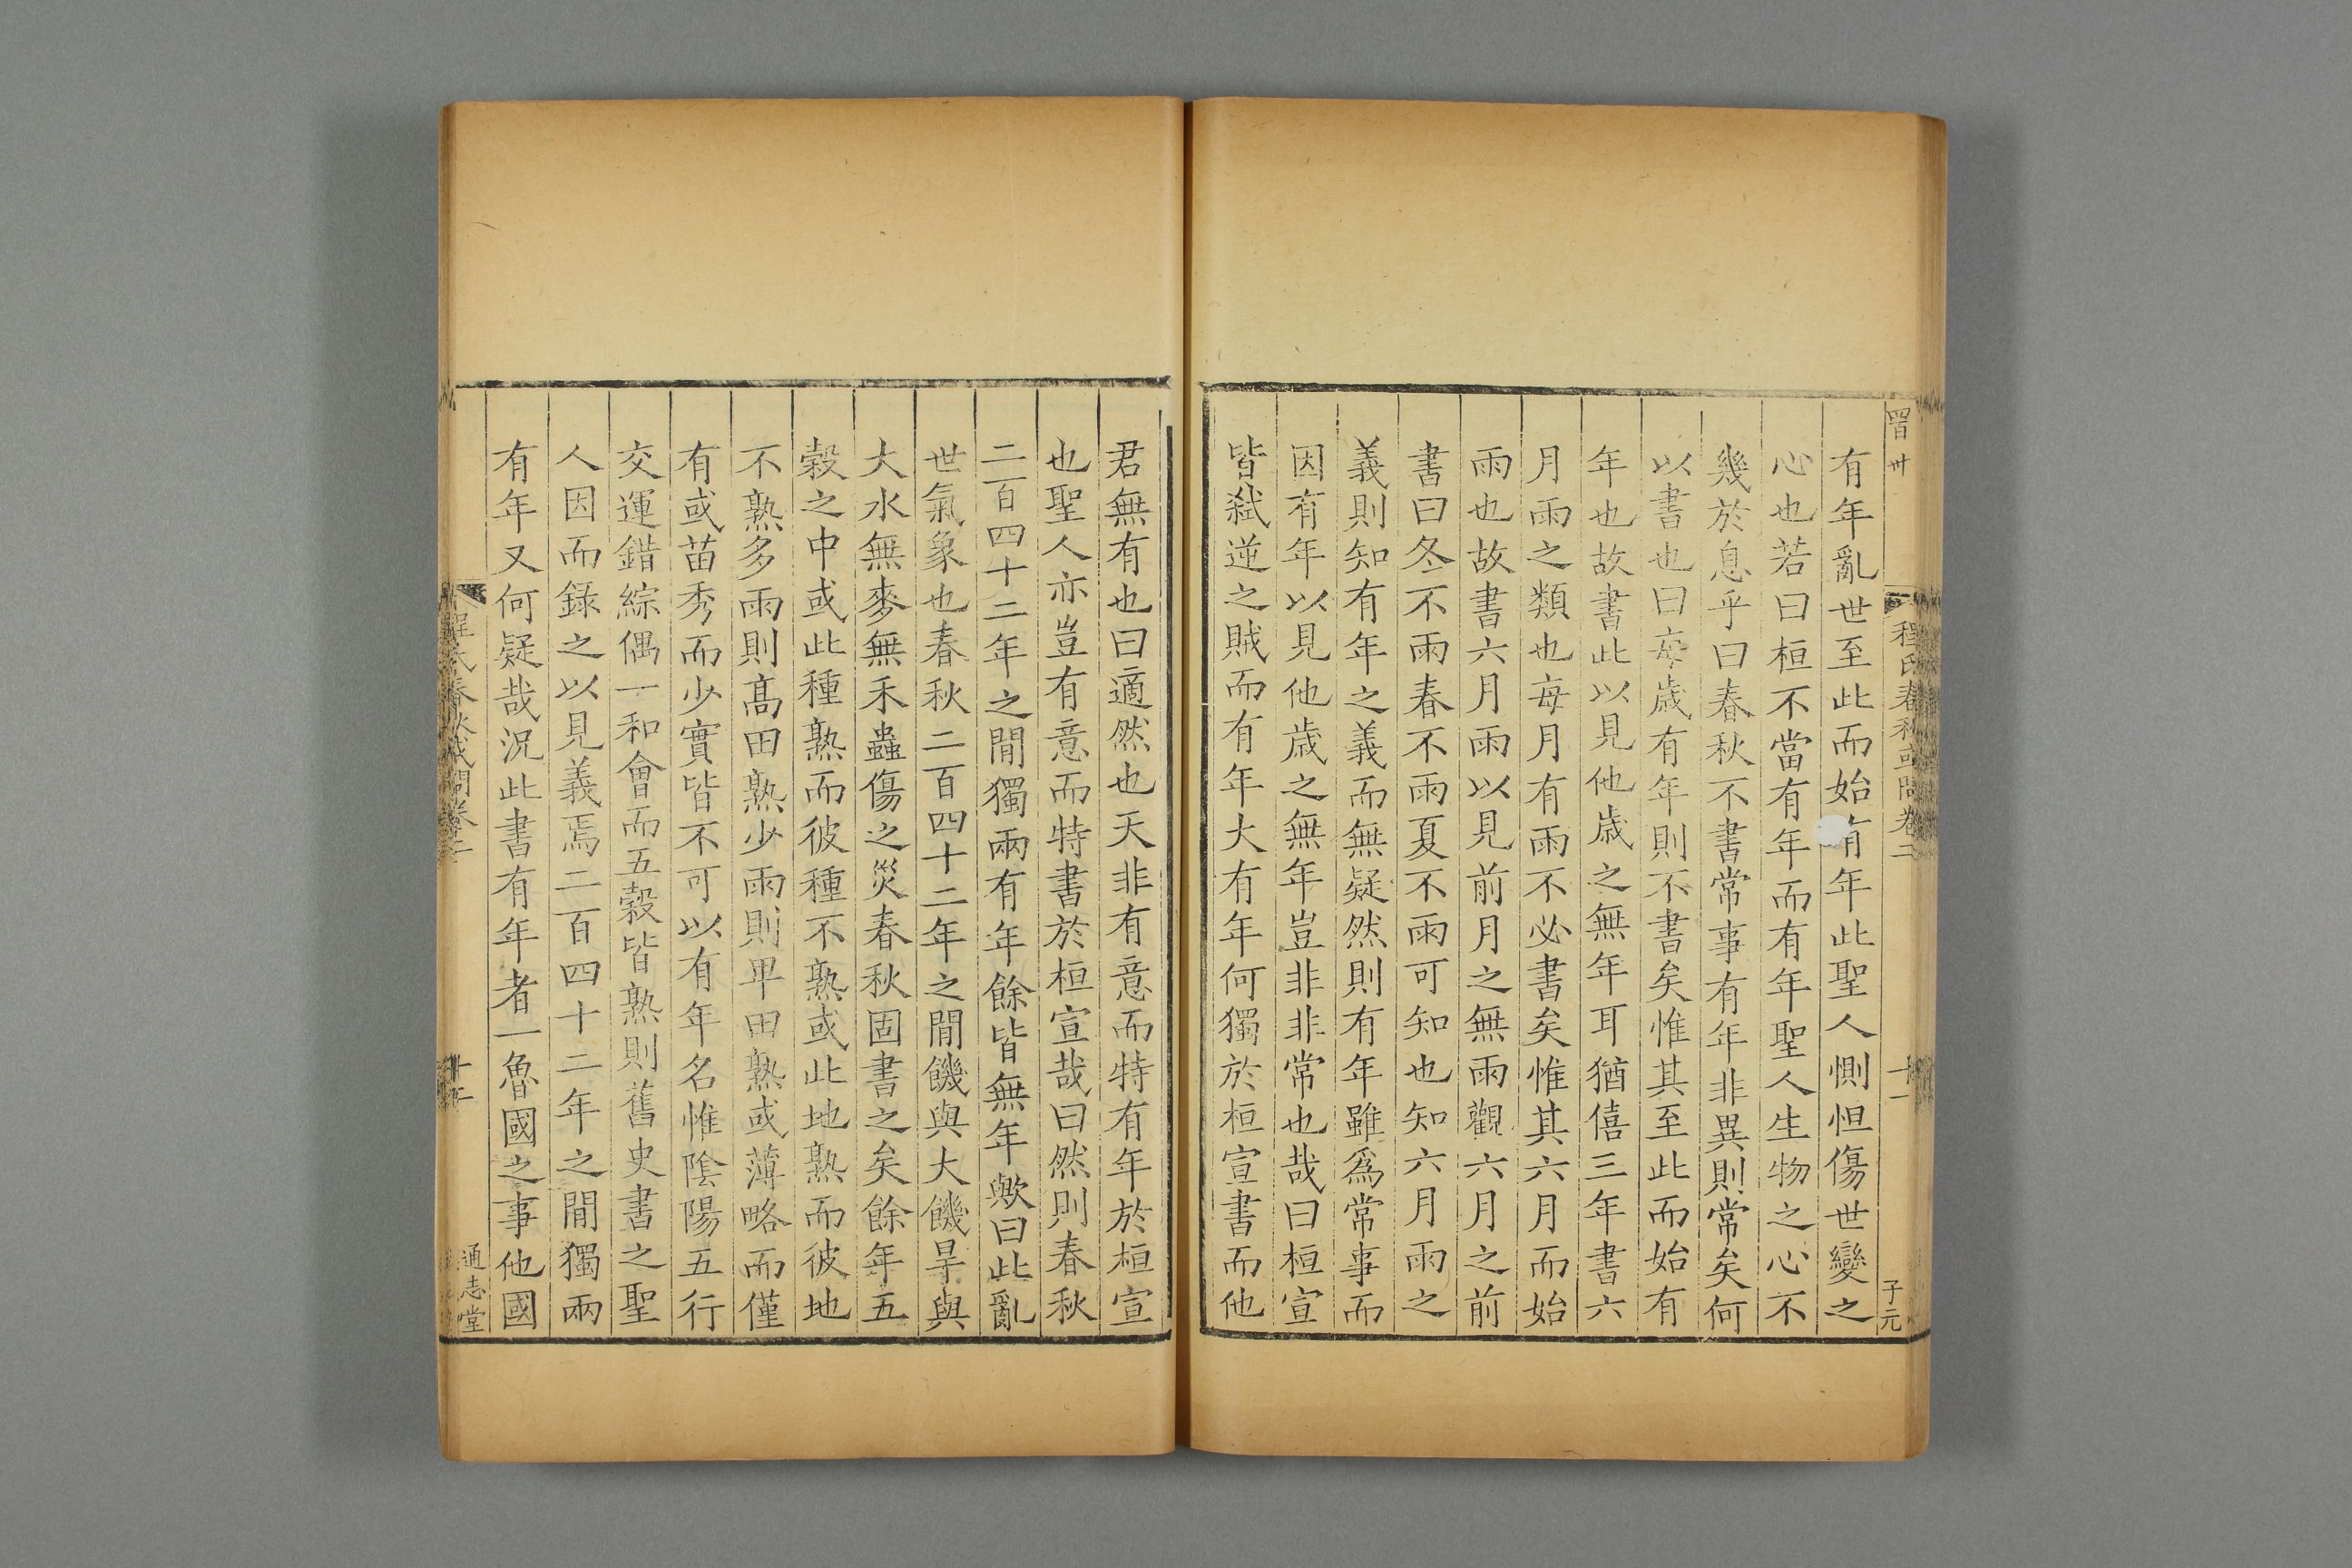 程氏春秋或問卷二
十一
子元
有年亂世至此而始有年此聖人惻怛傷世變之
心也若曰桓不當有年而有年聖人生物之心不
幾於息乎曰春秋不書常事有年非異則常矣何
以書也曰每歲有年則不書矣惟其至此而始有
年也故書此以見他歲之無年耳猶僖三年書六
月雨之類也每月有雨不必書矣惟其六月而始
雨也故書六月雨以見前月之無雨觀六月之前
書曰冬不雨春不雨夏不雨可知也知六月雨之
義則知有年之義而無疑然則有年雖爲常事而
因有年以見他歲之無年豈非非常也哉曰桓宣
皆弑逆之賊而有年大有年何獨於桓宣書而他
君無有也曰適然也天非有意而特有年於桓宣
也聖人亦豈有意而特書於桓宣哉曰然則春秋
二百四十二年之間獨兩有年餘皆無年歟曰此亂
世氣象也春秋二百四十二年之間饑與大饑旱與
大水無麥無禾蟲傷之災春秋固書之矣餘年五
穀之中或此種熟而彼種不熟或此地熟而彼地
不熟多雨則高田熟少雨則卑田熟或薄略而僅
有或苗秀而少實皆不可以有年名惟陰陽五行
交運錯綜偶一和會而五穀皆熟則舊史書之聖
人因而錄之以見義焉二百四十二年之間獨兩
有年又何疑哉況此書有年者一魯國之事他國
程氏春秋或問卷二
通志堂